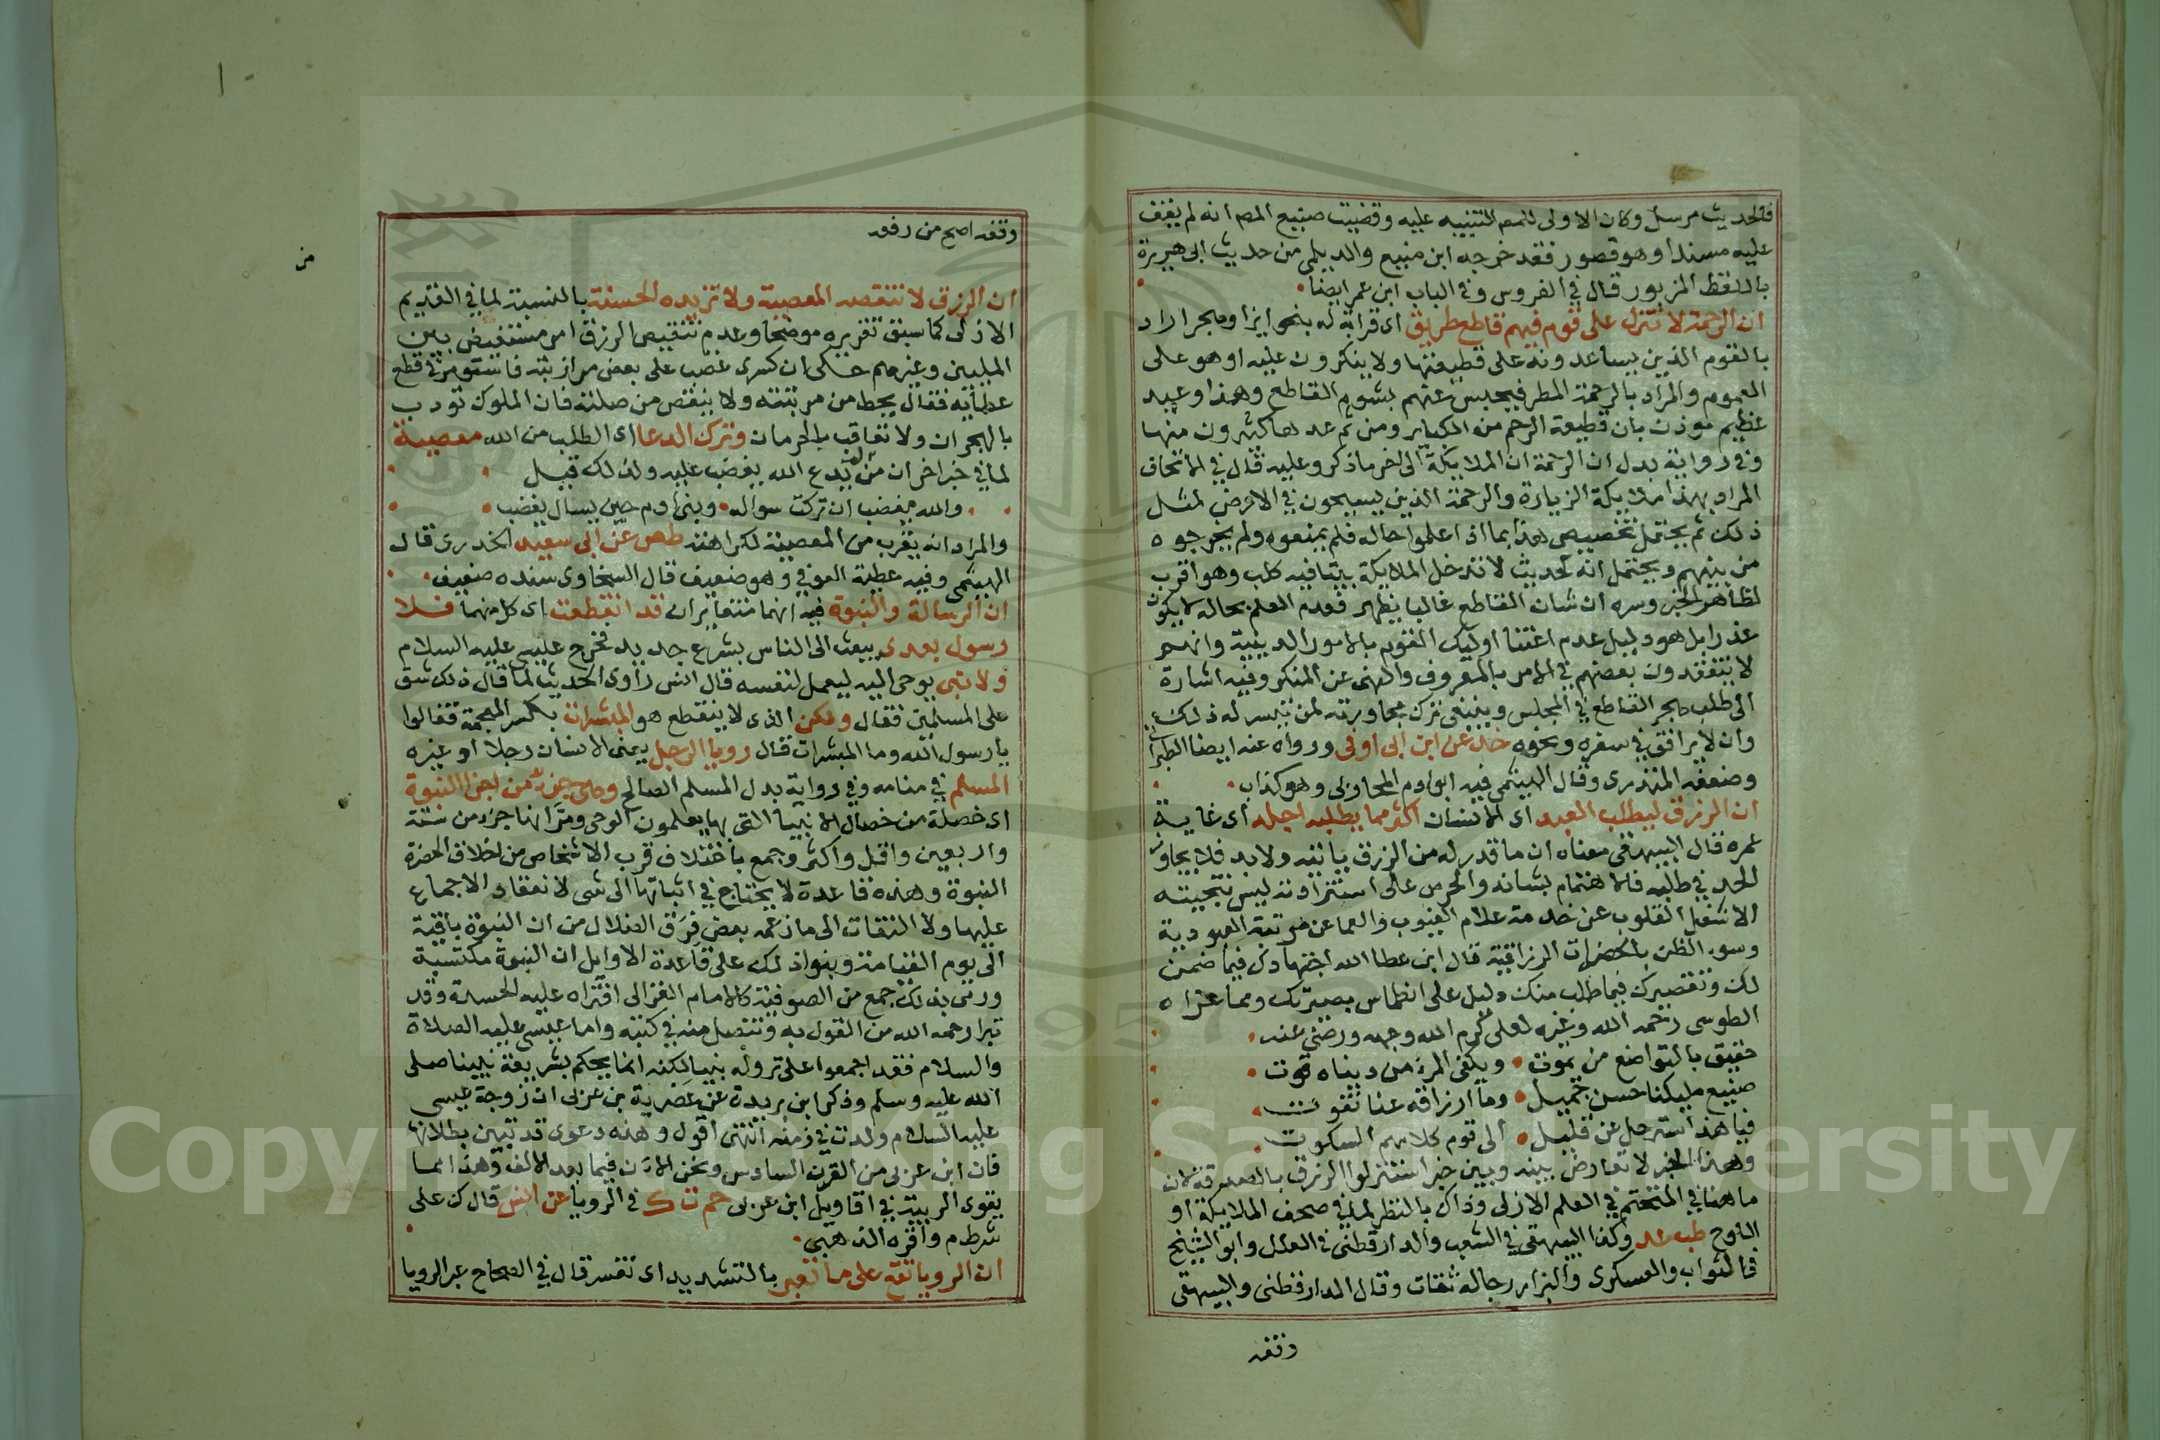 فالحديث مرسل وكان الاولى للمص التنبيه عليه وقضيت صنيع المص انه لم يقف
عليه مسندا وهو قصور فقد خرجه ابن منيع والديلمي من حديث ابى هريرة
باللفظ المزبور قال في الفردوس وفي الباب ابن عمر ايضا
ان الرحمة لا تنزل على قوم فيهم قاطع طريق اى قرابة له بنحو ايزا وهجر اراد
بالقوم الذين يساعدونه على قطيعتها ولا ينكرون عليه او هو على
العموم والمراد بالرحمة المطر فيحبس عنهم بشوم القاطع وهذا وعيد
عظيم موذن بان قطيعة الرحم من الكباير ومن ثم عدها كثيرون منها
وفي رواية بدل ان الرحمة ان الملايكة الى اخر ما ذكر وعليه قال في الاتحاف
المراد بهذا ملايكة الزيارة والرحمة الذين يسيحون في الارض لمثل
ذلك ثم يحتمل تخصيص هذا بما اذا علموا حاله فلم يمنعوه ولم يخرجوه
من بينهم ويحتمل انه كحديث لا تدخل الملايكة بيتا فيه كلب وهو اقرب
لظاهر الخبر وسره ان شان القاطع غالبا يظهر فعدم العلم بحاله لا يكون
عذرا بل هو دليل عدم اعتنا اوليك القوم بالامور الدينية وانهم
لا يتفقدون بعضهم في الامر بالمعروف والنهى عن المنكر وفيه اشارة
الى طلب هجر القاطع في المجلس وينبغى ترك مجاورته لمن تيسر له ذلك
وان لا يرافق في سفر ونحوه خد عن ابن ابى اوفى ورواه عنه ايضا الطبراني
وضعفه المنذرى وقال الهيتمي فيه ابو ادم المحاربى وهو كذاب
ان الرزق ليطلب العبد اى الانسان اكثر مما يطلبه اجله اى غاية
عمره قال البيهقى معناه ان ما قدر له من الرزق ياتيه ولا بد فلا يجاوز
الحد في طلبه فالاهتمام بشانه والحرص على استزادته ليس نتيجته
الا شغل القلوب عن خدمة علام الغيوب والعما عن مرتبة العبودية
وسوء الظن بالحضرات الرزاقية قال ابن عطا الله اجتهادك فيما ضمن
لك وتقصيرك فيما طلب منك دليل على انطماس بصيرتك ومما عزاه
الطوسى رحمه الله وغيره لعلى كرم الله وجهه ورضى عنه
حقيق بالتواضع من يموت ويكفى المرء من دنياه قوت
صنيع مليكنا حسن جميل وما ارزاقه عنا تفوت
فيا هذا سترحل عن قليل الى قوم كلامهم السكوت
وهذا الخبر لا تعارض بينه وبين خبر استنزلوا الرزق بالصدقة لان
ما هنا في المتحتم في العلم الازلى وذاك بالنظر لما في صحف الملايكة او
اللوح طب عد وكذا البيهقى في الشعب والدارقطنى في العلل وابو الشيخ
في الثواب والعسكرى والبزار رجاله ثقات وقال الدارقطنى والبيهقى
وقفه
من
وقفه اصح من رفعه
ان الرزق لا تنقصه المعصية ولا تزيده الحسنة بالنسبة لما في القديم
الازلى كما سبق تقريره موضحا وعدم تنقيص الرزق امر مستفيض بين
المليين وغيرهم حكى ان كسرى غضب على بعض مرازبته فاستؤمر في قطع
عطائه فقال يحط من مرتبته ولا ينقص من صلته فان الملوك تودب
بالهجران ولا تعاقب بالحرمان وترك الدعا اى الطلب من الله معصية
لما في خبر اخر ان من لم يدع الله يغضب عليه ولذلك قيل
والله يغضب ان تركت سواله وبنى ادم حين يسال يغضب
والمراد انه يقرب من المعصية لكراهته طص عن ابى سعيد الخدرى قال
الهيتمى وفيه عطية العوفي وهو ضعيف قال السخاوى سنده ضعيف
ان الرسالة والنبوة فيه انهما متغايران قد انقطعت اى كل منهما فلا
رسول بعدى يبعث الى الناس بشرع جديد فخرج عيسى عليه السلام
ولا نبى يوحى اليه ليعمل لنفسه قال انس راوى الحديث لما قال ذلك شق
على المسلمين فقال ولكن الذى لا ينقطع هو المبشرات بكسر المعجمة فقالوا
يا رسول الله وما المبشرات قال رويا الرجل يعنى الانسان رجلا او غيره
المسلم في منامه وفي رواية بدل المسلم الصالح وهي جزء من اجزا النبوة
اى خصلة من خصال الانبيا التى بها يعلمون الوحى ومر انها جزء من ستة
واربعين واقل واكثر وجمع باختلاف قرب الاشخاص من اخلاق الحضرة
النبوة وهذه قاعدة لا يحتاج في اثباتها الى شى لانعقاد الاجماع
عليها ولا التفات الى ما زعمه بعض فرق الضلال من ان النبوة باقية
الى يوم القيامة وبنوا ذلك على قاعدة الاوايل ان النبوة مكتسبة
ورمى بذلك جمع من الصوفية كالامام الغزالى افتراه عليه الحسدة وقد
تبرا رحمه الله من القول به وتنصل منه في كتبه واما عيسى عليه الصلاة
والسلام فقد اجمعوا على نزوله نبيا لكنه انما يحكم بشريعة نبينا صلى
الله عليه وسلم وذكر ابن بريدة عن عصرية بن عربى ان زوجة عيسى
عليه السلام ولدت في زمنه انتهى اقول وهذه دعوى قد تبين بطلانها
فان ابن عربى من القرن السادس ونحن الان فيما بعد الالف وهذا مما
يقوى الريبة في اقاويل ابن عربى حم ت ك في الرويا عن انس قال ك على
شرط م واقره الذهبى
ان الرويا تقع على ما تعبر بالتشديد اى تفسر قال في الصحاح عبر الرويا
Copyright © King Saud University
1957